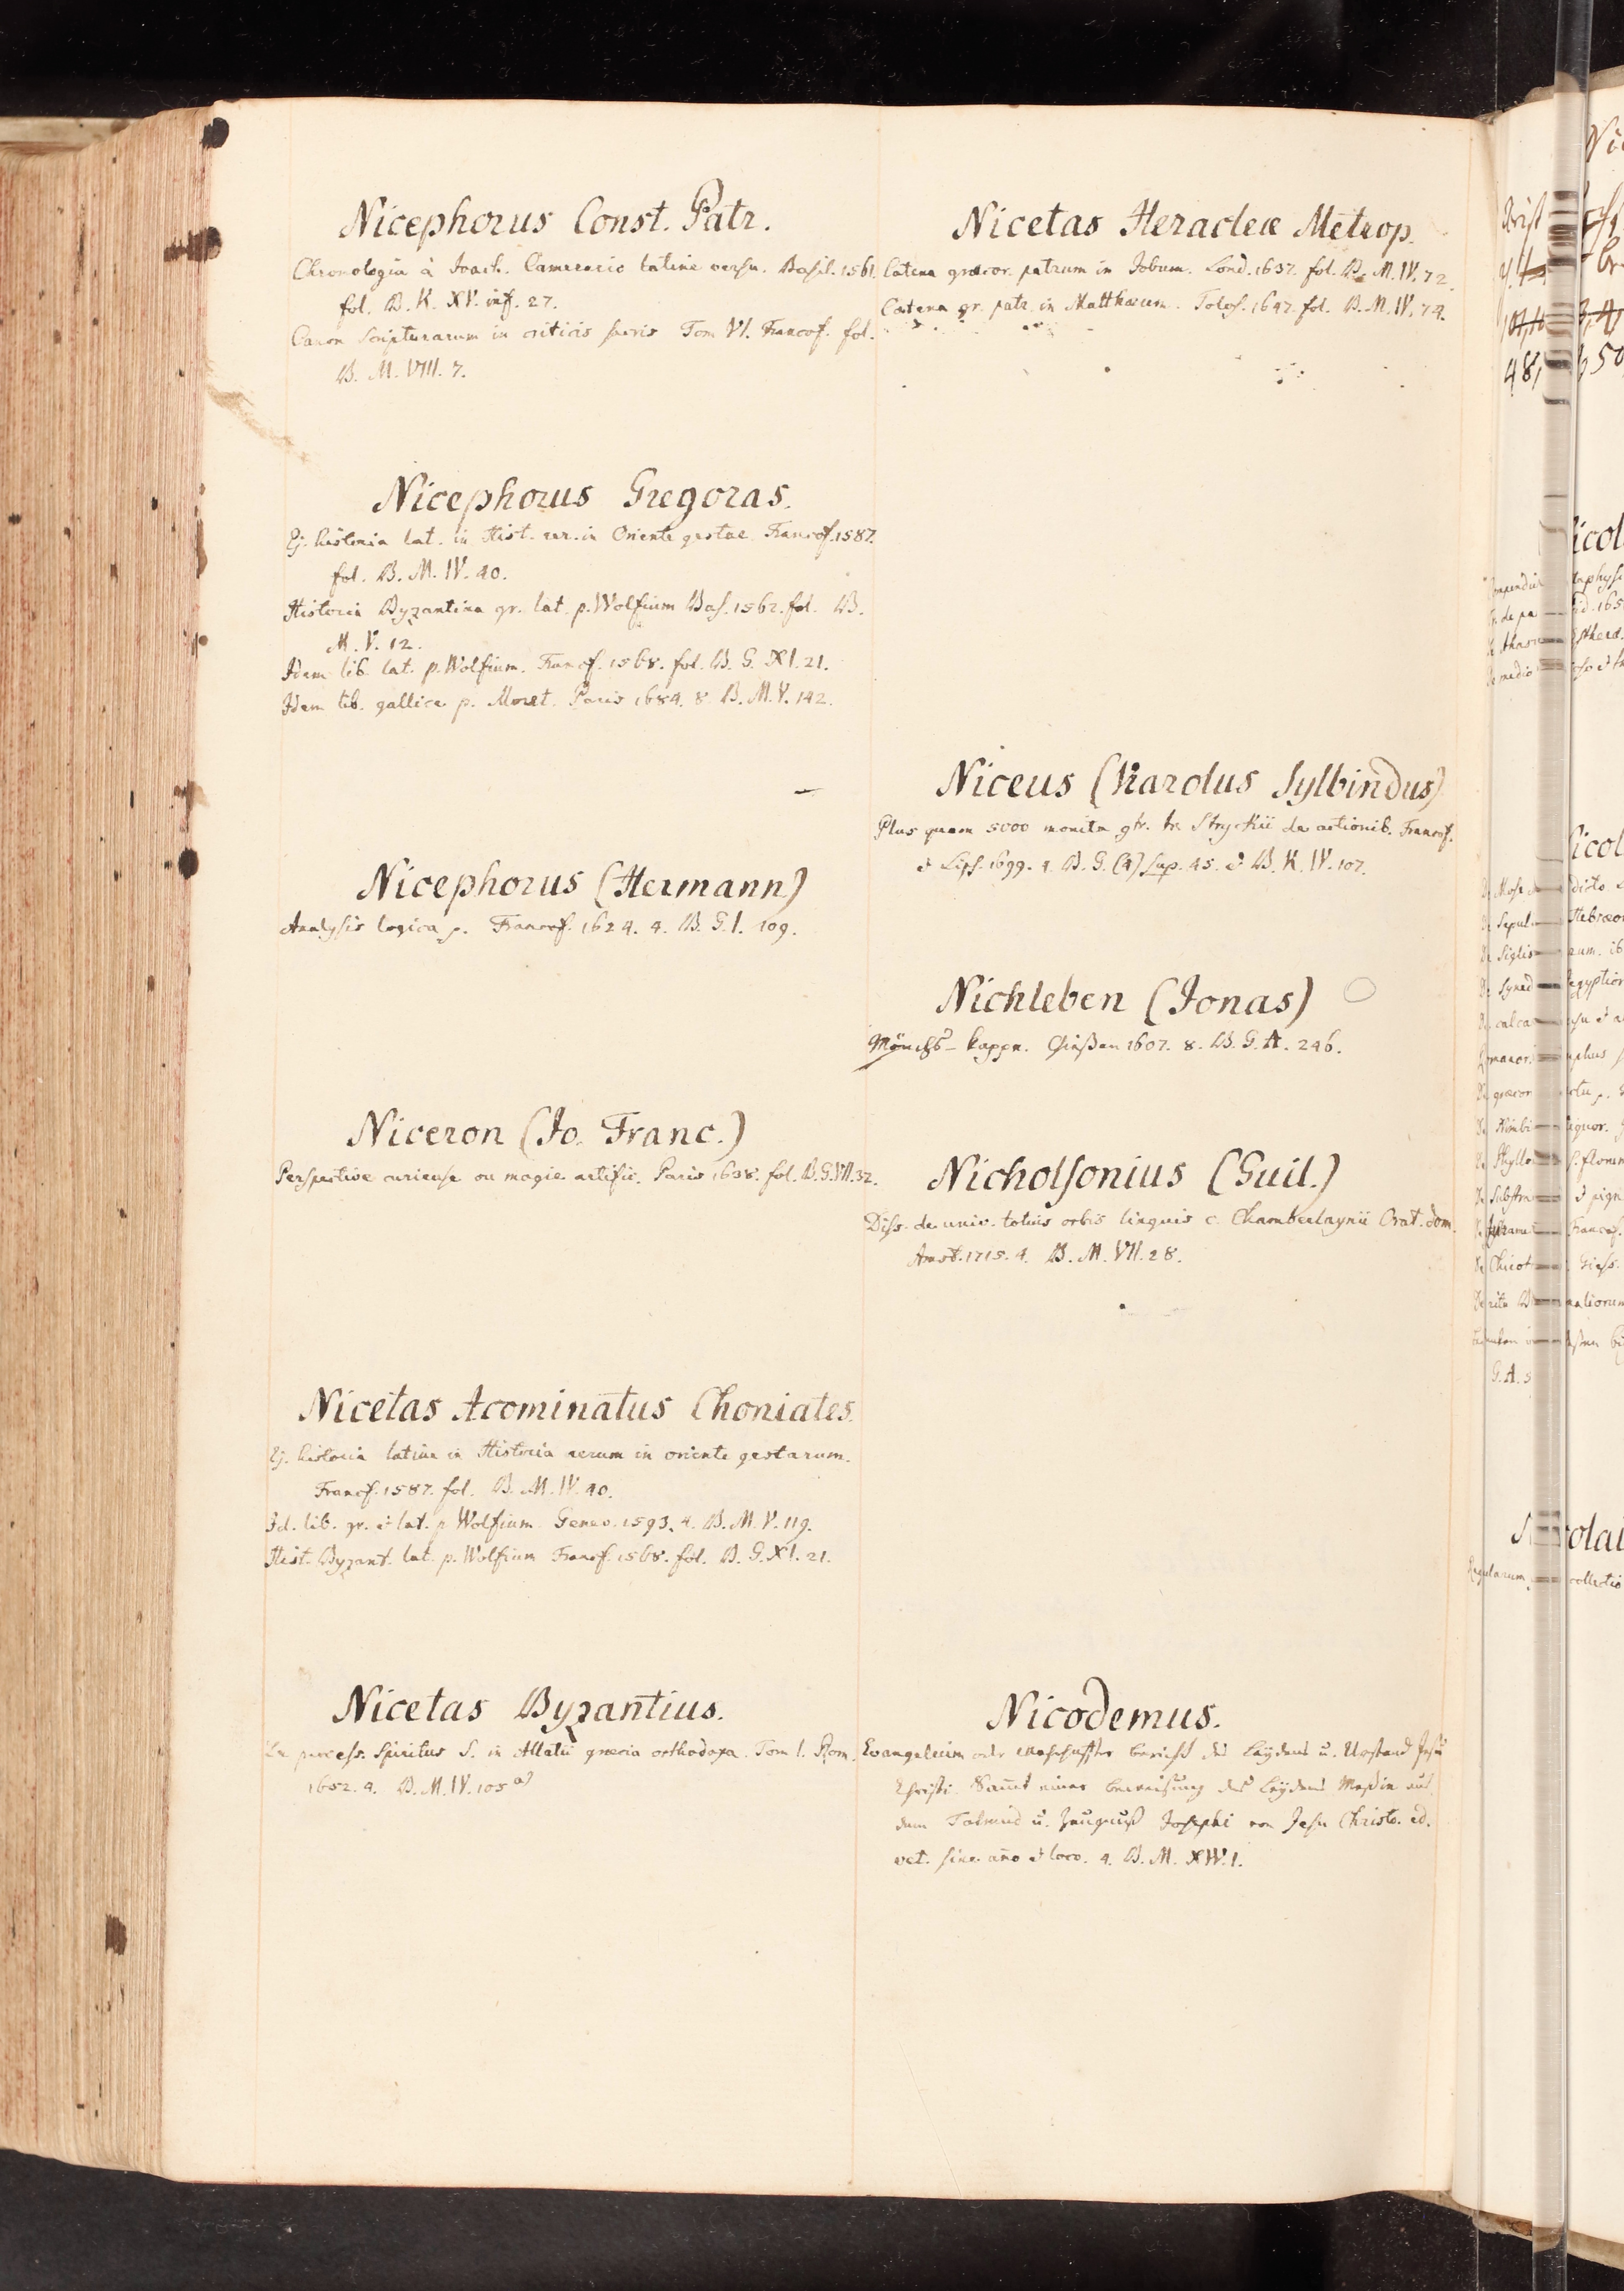 Nicephorus Const. Patr.
Chronologia à Joach. Camerario latine versa. Basil. 1561.
fol. B. K. XV. inf. 27.
Canon Scripturarum in criticis sacris Tom VI. Francof. fol.
B. M. VIII. 7.
Nicephorus Gregoras.
Ej. historia lat. in Hist. rer. in Oriente gestar. Francof. 1587.
fol. B. M. IV. 40.
Historia Byzantina gr. lat. p. Wolfium Bas. 1562. fol. B.
M. V. 12.
Idem lib. lat. p. Wolfium. Francf. 1568. fol. B. G. XI. 21.
Idem lib. gallice p. Moret. Paris 1684. 8. B. M. V. 142.
Nicephorus (Hermann)
Analysis logica p. Francof. 1624. 4. B. G. I. 109.
Niceron (Jo. Franc.)
Perspective curieuse ou magie artific. Paris 1638. fol. B. G. VII. 32.
Nicetas Acominatus Choniates.
Ej. historia latine in Historia rerum in oriente gestarum.
Francf. 1587. fol. B. M. IV. 40.
Id. lib. gr. & lat. p Wolfium Genev. 1593. 4. B. M. V. 119.
Hist. Byzant. lat. p. Wolfium Francf. 1568. fol. B. G. XI. 21.
Nicetas Byzantius.
De process. Spiritus S. in Allatii græcia orthodoxa. Tom I. Rom.
1652. 4. B. M. IV. 105 a)
Nicetas Heracleæ Metrop.
Catena græcor. patrum in Jobum. Lond. 1637. fol. B. M. IV. 72.
Catena gr. patr. in Matthæum. Tolos. 1647. fol. B. M. IV. 74.
Niceus (Karolus Sylbindus)
Plus quam 5000 monita gtr. tr. Stryckii de actionib. Francof.
& Lips. 1699. 4. B. G. (A) sup. 45. & B. K. IV. 107.
Nichleben (Jonas)
Mönchs-kappe. Gießen 1607. 8. B. G. A. 246.
Nicholsonius (Guil.)
Diss. de univ. totius orbis linguis c. Chamberlaynii Orat. dom.
Amst. 1715. 4. B. M. VII. 28.
Nicodemus.
Evangelium oder warhaffter bericht des Leydens u. Urstand Jesu
Christi. Samt einer beweisung des Leydens Meßiæ aus
dem Talmud u. Zeugnuß Josephi von Jesu Christo. ed.
vet. sine año & loco. 4. B. M. XIV. 1.